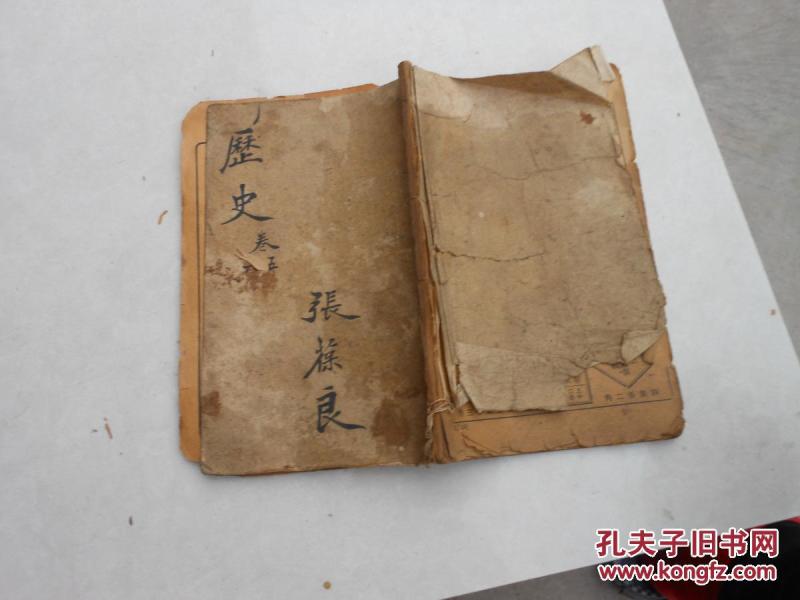 歷史
卷五
張葆良
孔夫子旧书网
www.kongfz.com